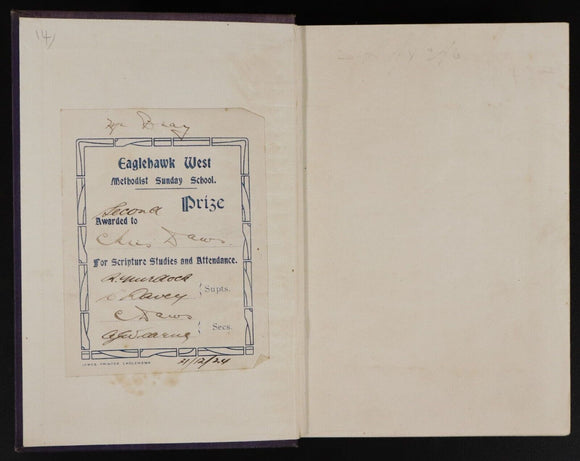 14/
Eaglehawk West
Methodist Sunday School.
Second Prize
Awarded to
Chris Daws.
For Scripture Studies and Attendance.
R. Murdock
Davey } Supts.
C Daws
} Secs.
JAMES PRINTER EAGLEHAWK
21/12/24